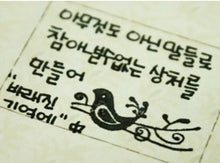 아무것도 아닌 말들로
참아낼 수 없는 상처를
만들어
"바래진
기억에" 中